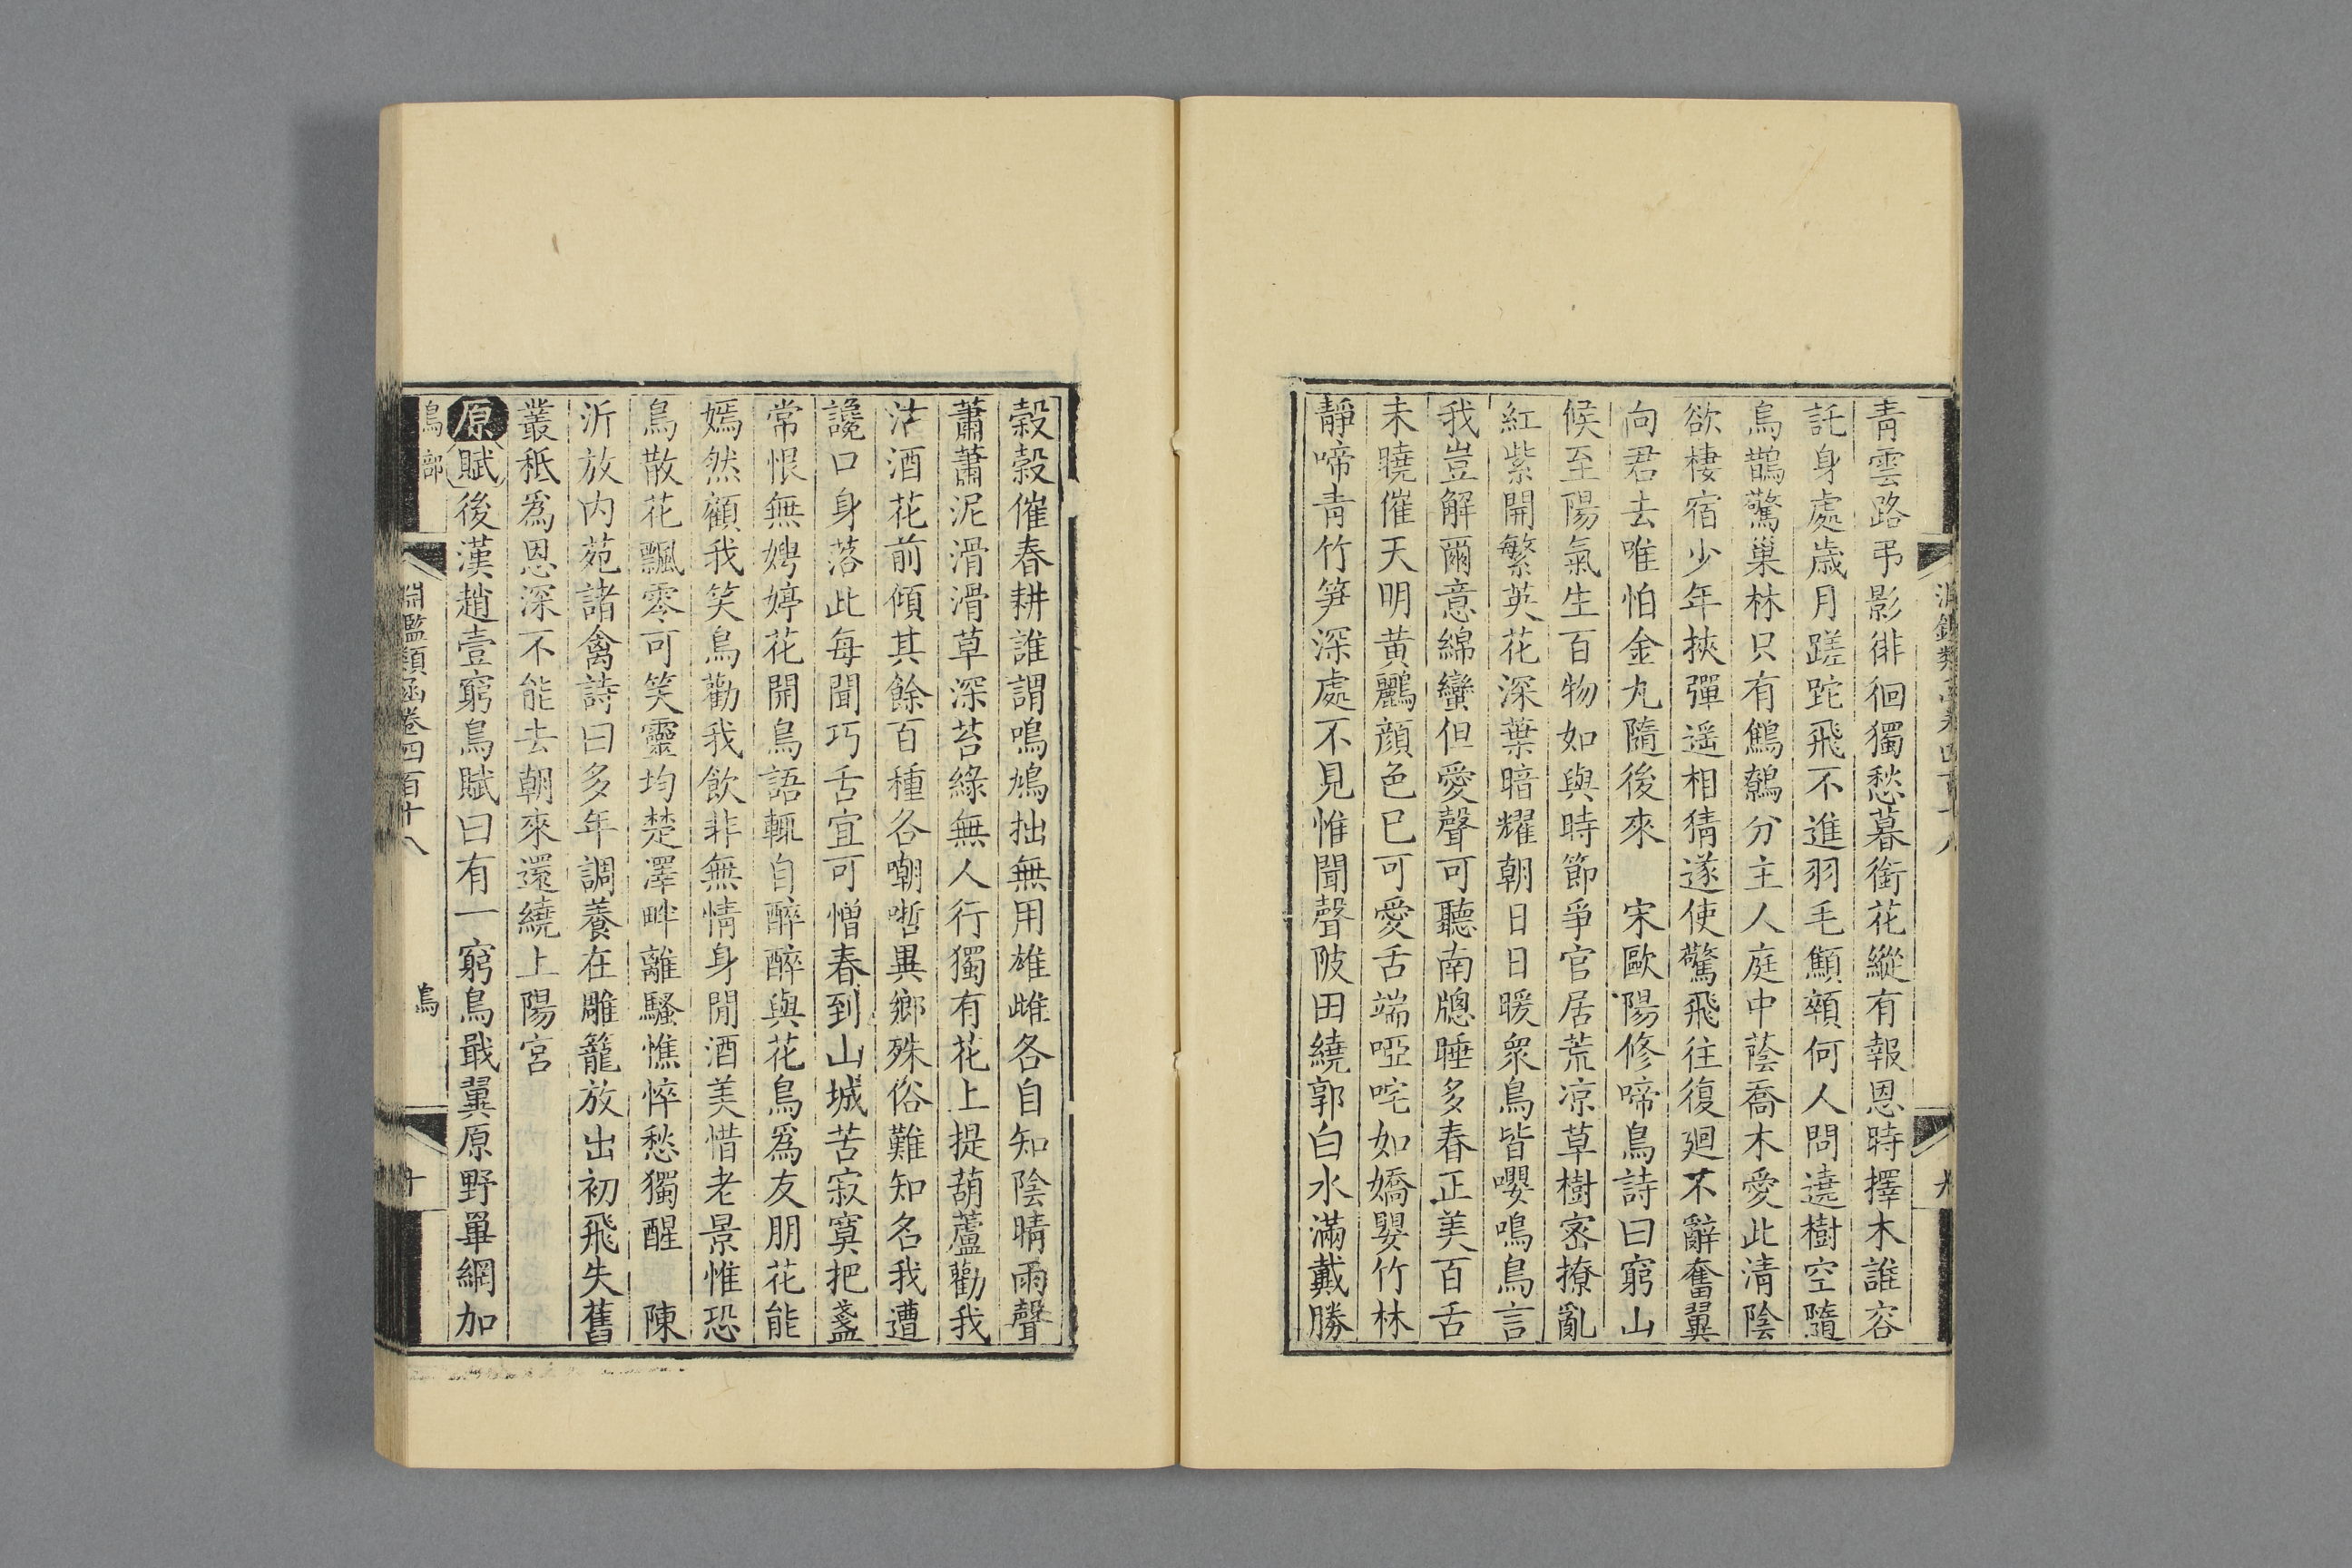 青雲路弔影徘徊獨愁暮銜花縱有報恩時擇木誰容
託身處歲月蹉跎飛不進羽毛顦顇何人問遶樹空隨
烏鵲驚巢林只有鷦鷯分主人庭中蔭喬木愛此清陰
欲棲宿少年挾彈遥相猜遂使驚飛往復廻不辭奮翼
向君去唯怕金丸隨後來　宋歐陽修啼鳥詩曰窮山
候至陽氣生百物如與時節爭官居荒凉草樹宻撩亂
紅紫開繁英花深葉暗耀朝日日暖衆鳥皆嚶鳴鳥言
我豈解爾意綿蠻但愛聲可聽南牕睡多春正美百舌
未曉催天明黄鸝顔色已可愛舌端啞咤如嬌嬰竹林
靜啼青竹笋深處不見惟聞聲陂田繞郭白水滿戴勝
穀穀催春耕誰謂鳴鳩拙無用雄雌各自知陰晴雨聲
蕭蕭泥滑滑草深苔綠無人行獨有花上提葫蘆勸我
沽酒花前傾其餘百種各嘲哳異鄉殊俗難知名我遭
讒口身落此每聞巧舌宜可憎春到山城苦寂寞把盞
常恨無娉婷花開鳥語輒自醉醉與花鳥爲友朋花能
嫣然顧我笑鳥勸我飲非無情身閒酒美惜老景惟恐
鳥散花飄零可笑靈均楚澤畔離騷憔悴愁獨醒　陳
沂放内苑諸禽詩曰多年調養在雕籠放出初飛失舊
叢秪爲恩深不能去朝來還繞上陽宮
原賦後漢趙壹窮鳥賦曰有一窮鳥戢翼原野罼網加
鳥部
淵鑑類函卷四百十八
鳥
十